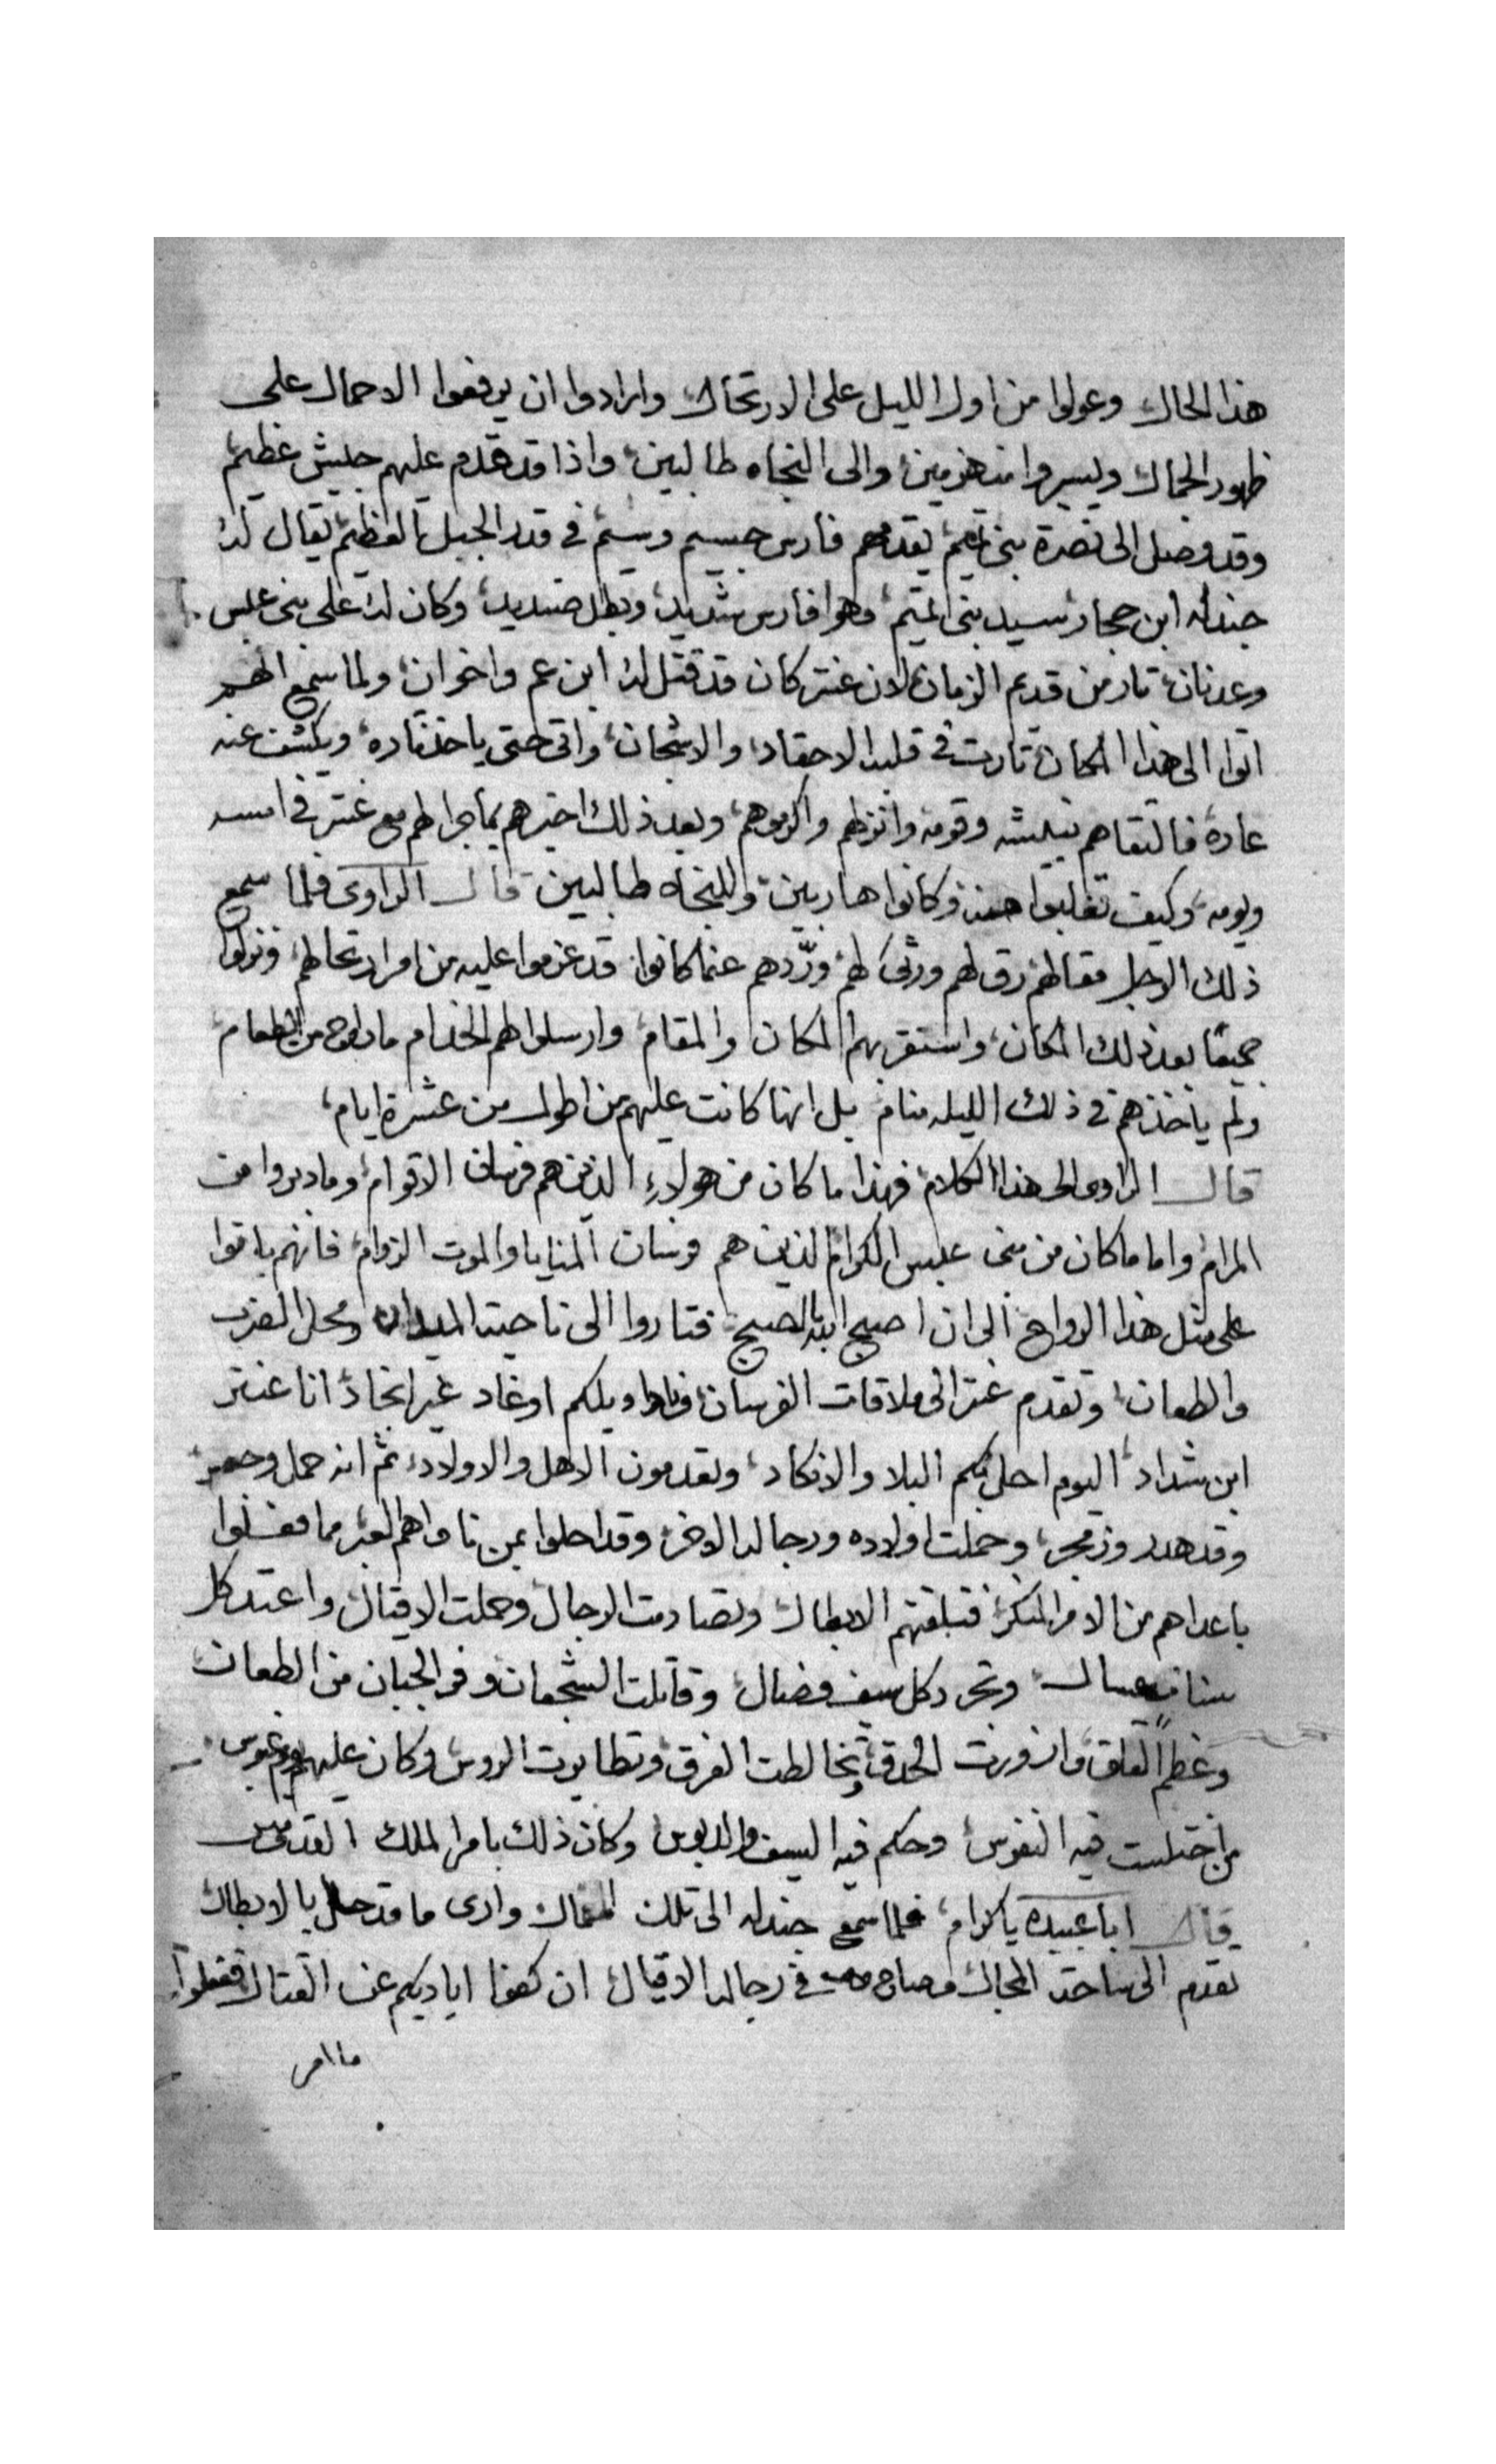 هذا الحال وعولوا من اول الليل على الارتحال وارادوا ان يرفعوا الاحمال على
ظهور الجمال ويسيروا منهزمين والى النجاه طالبين واذا قد قدم عليهم جيش عظيم
وقد وصل الى نصرة بنى تميم يقدمهم فارس جسيم وسيم في قدر الجبل العظيم يقال له
جندله ابن حجار سيد بنى تميم وهوا فارس شديد وبطل صنديد وكان له على بنى عبس
وعدنان تار من قديم الزمان لان عنتر كان قد قتل له ابن عم واخوان ولما سمع انهم
اتوا الى هذا المكان تارت في قلبه الاحقاد والاشجان واتى حتى ياخذ تاره ويكشف عنه
عاره فالتقاهم وقومه وانزلهم واكرموهم وبعد ذلك اخبرهم بما جرا لهم مع عنتر في امسه
ويومه وكيف تغلبوا منه وكانوا هاربين وللنجاه طالبين قال الراوى فلما سمع
ذلك الرجل مقالهم رق لهم ورثى لهم وردهم عنما كانوا قد عزموا عليه من امر ارتحالهم ونزلوا
جميعًا بعد ذلك المكان واستقر بهم المكان والمقام وارسلوا لهم الخدام ما راج من الطعام
ولم ياخذهم في ذلك الليله منام بل انها كانت عليهم من اطول من عشرة ايام
قال الراوى لهذا الكلام فهذا ما كان من هولاءِ الذين هم فرسان الاقوام وما دبروا من
المرام واما ما كان من بنى عبس الكرام الذين هم فرسان المنايا والموت الزوام فانهم باتوا
على مثل هذا الرواح الى ان اصبح الله بالصبح فتاروا الى ناحيت الميدان ومحل الضرب
والطعان وتقدم عنتر الى ملاقات الفرسان ونادا ويلكم اوغاد غير انجاد انا عنتر
ابن شداد اليوم احل بكم البلا والانكاد وتعدمون الاهل والاولاد ثم انه حمل
وقد هدر وزمجر وحملت اولاده ورجاله الاخر وقد احلوا بمن ناواهم العبر مما فعلوا
باعداهم من الامر المنكر فتلقتهم الابطال وتصادمت الرجال وحملت الاقيال واعتد كل
سنان عسال وتجرد كل سيف فصال وقاتلت الشجعان وفر الجبان من الطعان
وعظم القلق وازورت الحدق وتخالطت الفرق وتطايرت الروس وكان عليهم يوم عبوس
اختلست فيه النفوس وحكم فيه السيف والدبوس وكان ذلك بامر الملك القدوس
قال ابا عبيدة ياكرام فلما سمع جندله الى تلك المقال وارى ما قد حل بالابطال
تقدم الى ساحت المجال وصاح في رجاله الاقيال ان كفوا اياديكم عن القتال ففعلوا
ما امر